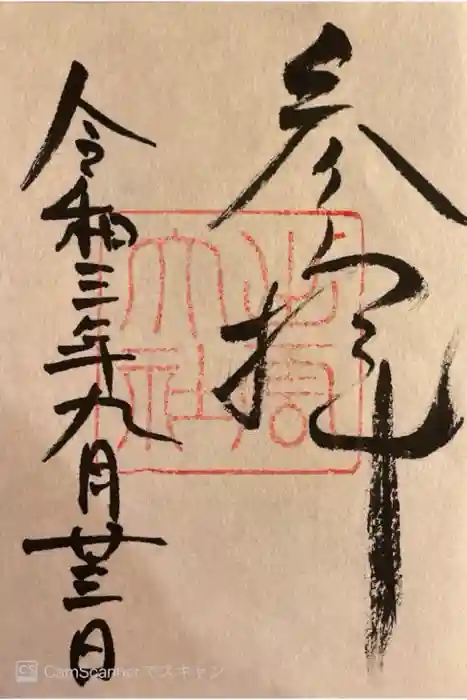 参拝
令和三年九月廿三日
CS CamScannerでスキャン